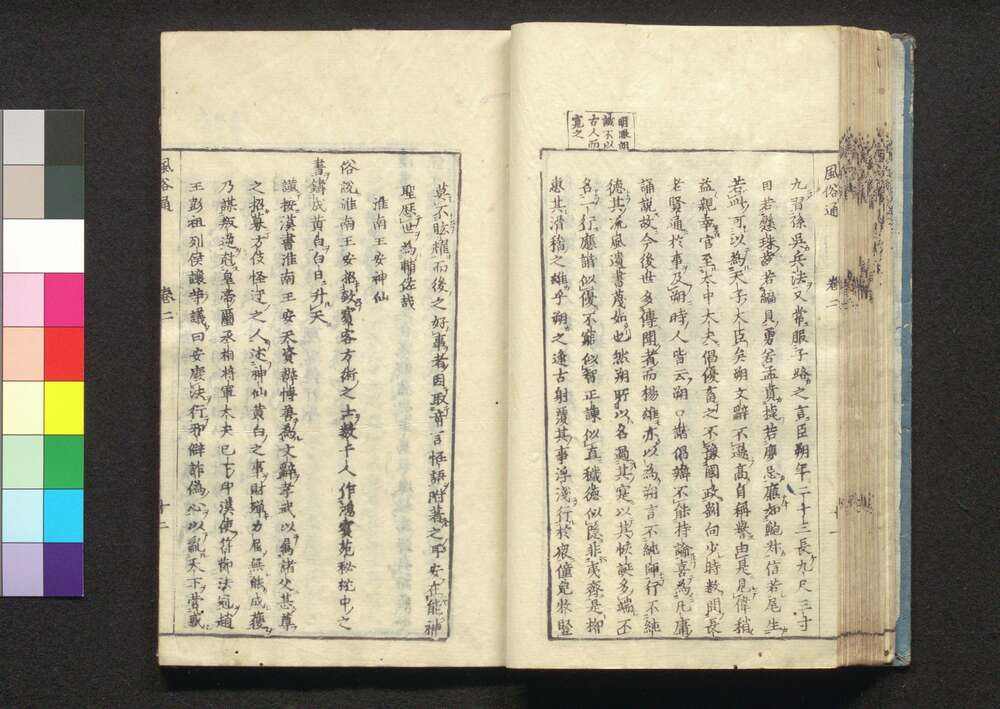 明澈朗
誠不以
古人而
寬之
風俗通
卷二
九習孫吳兵法又常服子路之言臣朔年二十三長九尺三寸
目若懸珠齒若編貝勇若孟賁捷若慶忌廉如鮑叔信若尾生
若此可以為天子大臣矣朔文辭不遜高自稱譽由是見偉稍
益親幸官至太中大夫倡優畜之不豫國政劉向少時數問長
老賢通於事及朔時人皆云朔口諧倡辯不能持論喜為凡庸
誦說故令後世多傳聞者而楊雄亦以為朔言不純師行不純
德其流風遺書蔑如也然朔所以名過其實以其恢誕多端不
名一行應諧似優不窮似智正諫似直穢德似隱非夷齊是柳
惠其滑稽之雄乎朔之逢占射覆其事浮淺行於衆僮兒牧豎
莫不眩耀而後之好事者因取奇言怪語附著之耳安在能神
聖歷世為輔佐哉
淮南王安神仙
俗說淮南王安招致賓客方術之士數千人作鴻寶苑秘枕中之
書鑄成黃白白日升天
謹按漢書淮南王安天資辯博善為文辭孝武以屬諸父甚尊
之招募方伎怪迂之人述神仙黃白之事財殫力屈無能成獲
乃謀叛逆剋皇帝璽丞相將軍大夫已下印漢使符節法冠趙
王彭祖列侯讓等議曰安廢法行邪僻詐偽心以亂天下營惑
風俗通
卷二
十二